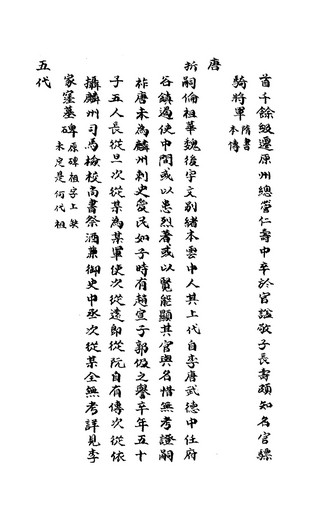 首千餘級遷原州總管仁壽中卒於官諡敬子長壽頗知名官驃
騎將軍隋書本傳
唐
折嗣倫祖華魏後宇文別緒本雲中人其上代自李唐武德中任府
谷鎮遏使中間或以忠烈著或以賢能顯其官與名惜無考證嗣
祚唐末為麟州刺史愛民如子時有趙宣子郭伋之譽卒年五十
子五人長從旦次從某為某軍使次從遠即從阮自有傳次從依
攝麟州司馬檢校尚書祭酒兼御史中丞次從某全無考詳見李
家窪墓碑原碑祖字上缺未定是何代祖
五代